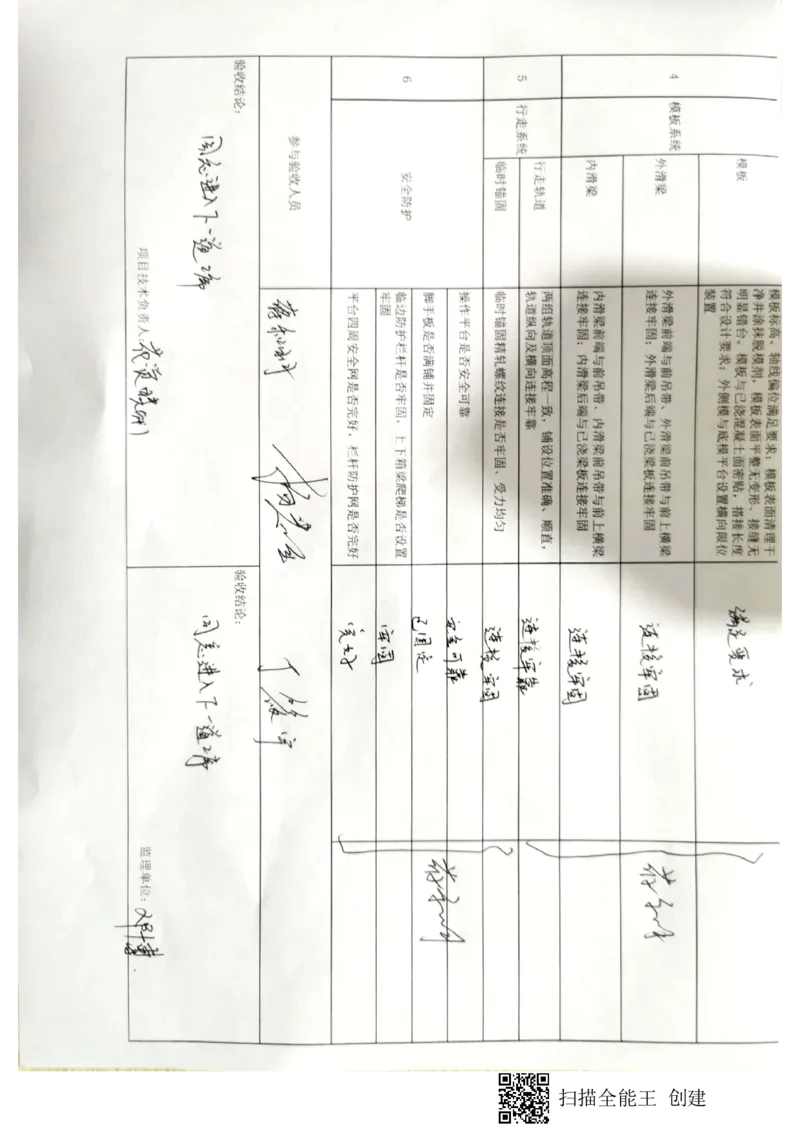 4
模板系统
模板
模板标高、轴线偏位满足要求；模板表面清理干
净并涂抹脱模剂，模板表面平整无变形、接缝无
明显错台。模板与已浇混凝土面密贴，搭接长度
符合设计要求；外侧模与底模平台设置横向限位
装置
满足要求
外滑梁
外滑梁前端与前吊带、外滑梁前吊带与前上横梁
连接牢固；外滑梁后端与已浇梁板连接牢固
连接牢固
内滑梁
内滑梁前端与前吊带、内滑梁前吊带与前上横梁
连接牢固；内滑梁后端与已浇梁板连接牢固
连接牢固
5
行走系统
行走轨道
两组轨道顶面高程一致，铺设位置准确、顺直，
轨道纵向及横向连接牢靠
连接牢靠
临时锚固
临时锚固精轧螺纹连接是否牢固、受力均匀
连接牢固
6
安全防护
操作平台是否安全可靠
安全可靠
脚手板是否满铺并固定
已固定
临边防护栏杆是否牢固，上下箱梁爬梯是否设置
牢固
牢固
平台四周安全网是否完好，栏杆防护网是否完好
完好
参与验收人员
验收结论：
同意进入下一道工序
项目技术负责人：
验收结论：
同意进入下一道工序
监理单位：
扫描全能王 创建